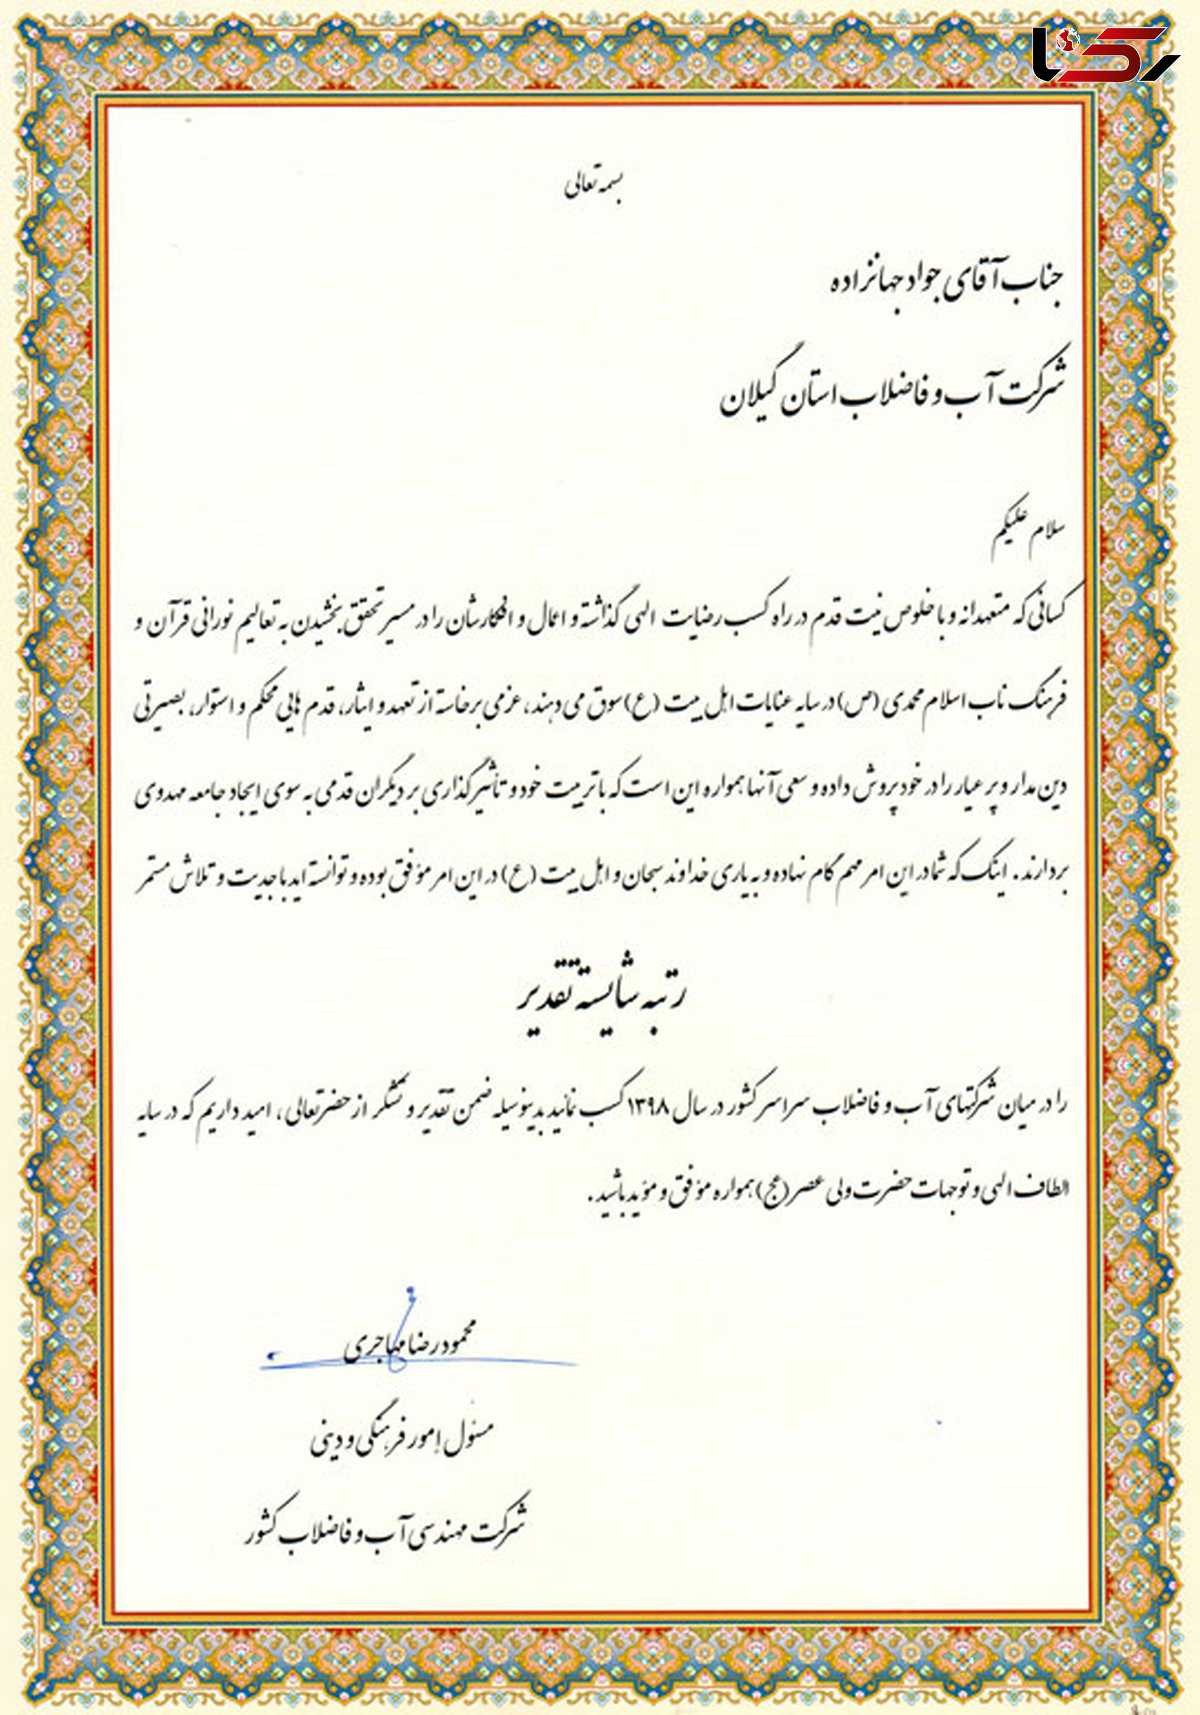 رکنا
بسمه تعالی
جناب آقای جواد جهانزاده
شرکت آب و فاضلاب استان گیلان
سلام علیکم
کسانی که متعهدانه و با خلوص نیت قدم در راه کسب رضایت الهی گذاشته و اعمال و افکارشان را در مسیر تحقق بخشیدن به تعالیم نورانی قرآن و
فرهنگ ناب اسلام محمدی (ص) در سایه عنایات اهل بیت (ع) سوق می دهند، عزمی برخاسته از تعهد و ایثار، قدم هایی محکم و استوار، بصیرتی
دین مدار و پر عیار را در خود پروش داده و سعی آنها همواره این است که با تربیت خود و تأثیرگذاری بر دیگران قدمی به سوی ایجاد جامعه مهدوی
بردارند. اینک که شما در این امر مهم گام نهاده و به یاری خداوند سبحان و اهل بیت (ع) در این امر مؤفق بوده و توانسته اید با جدیت و تلاش مستمر
رتبه شایسته تقدیر
را در میان شرکتهای آب و فاضلاب سراسر کشور در سال ۱۳۹۸ کسب نمائید بدینوسیله ضمن تقدیر و تشکر از حضرتعالی، امید داریم که در سایه
الطاف الهی و توجهات حضرت ولی عصر (عج) همواره مؤفق و مؤید باشید.
محمود رضا مهاجری
مسئول امور فرهنگی و دینی
شرکت مهندسی آب و فاضلاب کشور